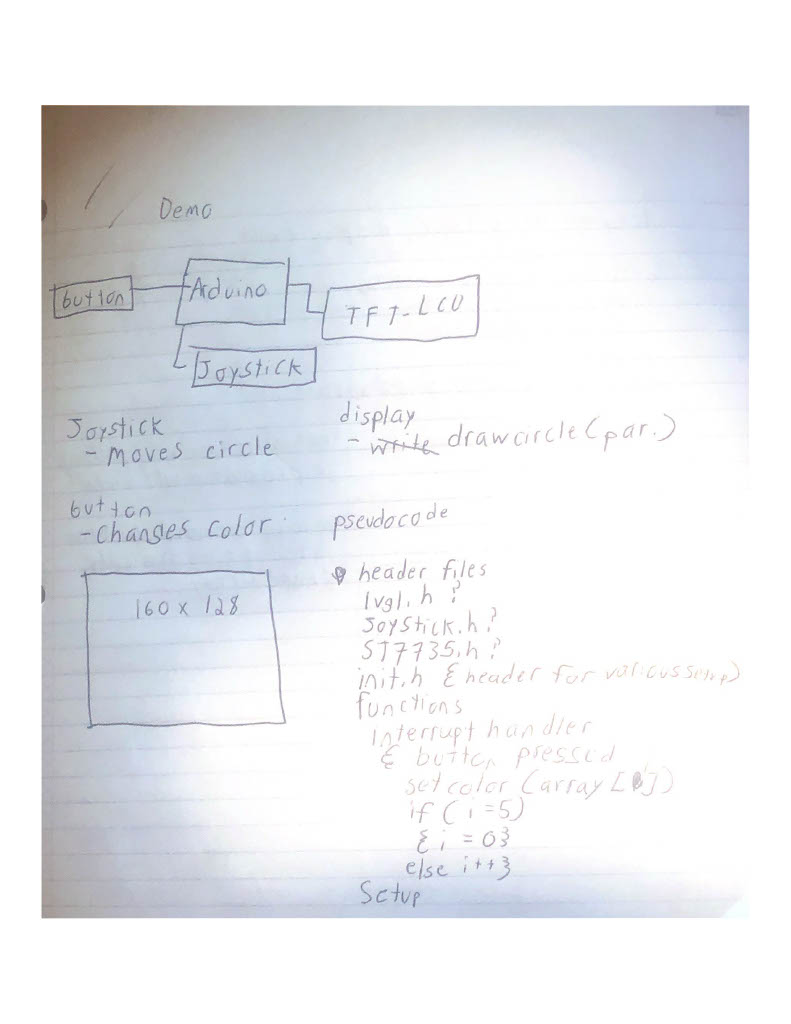 Demo
button
Arduino
TFT-LCD
Joystick
Joystick
- Moves circle
display
- write drawcircle(par.)
button
- Changes color
pseudocode
160 x 128
header files
lvgl.h ?
Joystick.h ?
ST7735.h ?
init.h {header for various setup}
functions
Interrupt handler
{ button pressed
set color (array [i])
if (i=5)
{i = 0}
else i++}
Setup